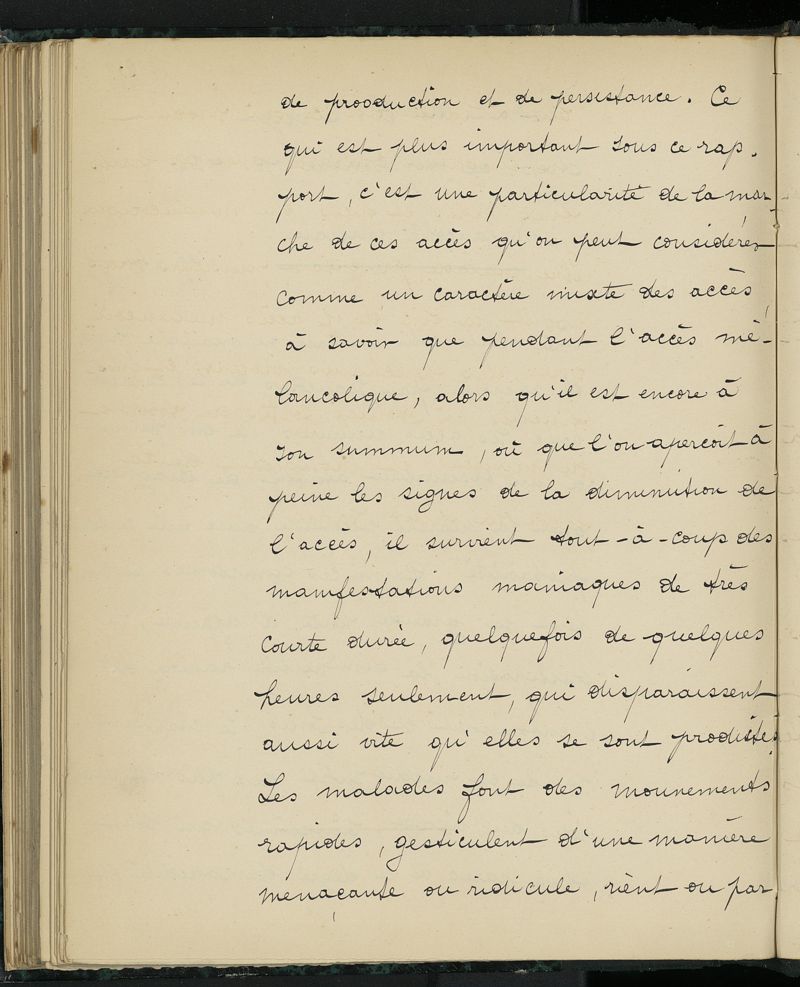 de prooduction et de persistance. Ce
qui est plus important sous ce rap-
port, c'est une particularité de la mar-
che de ces accès qu'on peut considérer
comme un caractère mixte des accès,
à savoir que pendant l'accès mé-
lancolique, alors qu'il est encore à
son summum, où que l'on aperçoit à
peine les signes de la diminution de
l'accès, il survient tout-à-coup des
manifestations maniaques de très
courte durée, quelquefois de quelques
heures seulement, qui disparaissent
aussi vite qu'elles se sont prodites.
Les malades font des mouvements
rapides, gesticulent d'une manière
menaçante ou ridicule, rient ou par